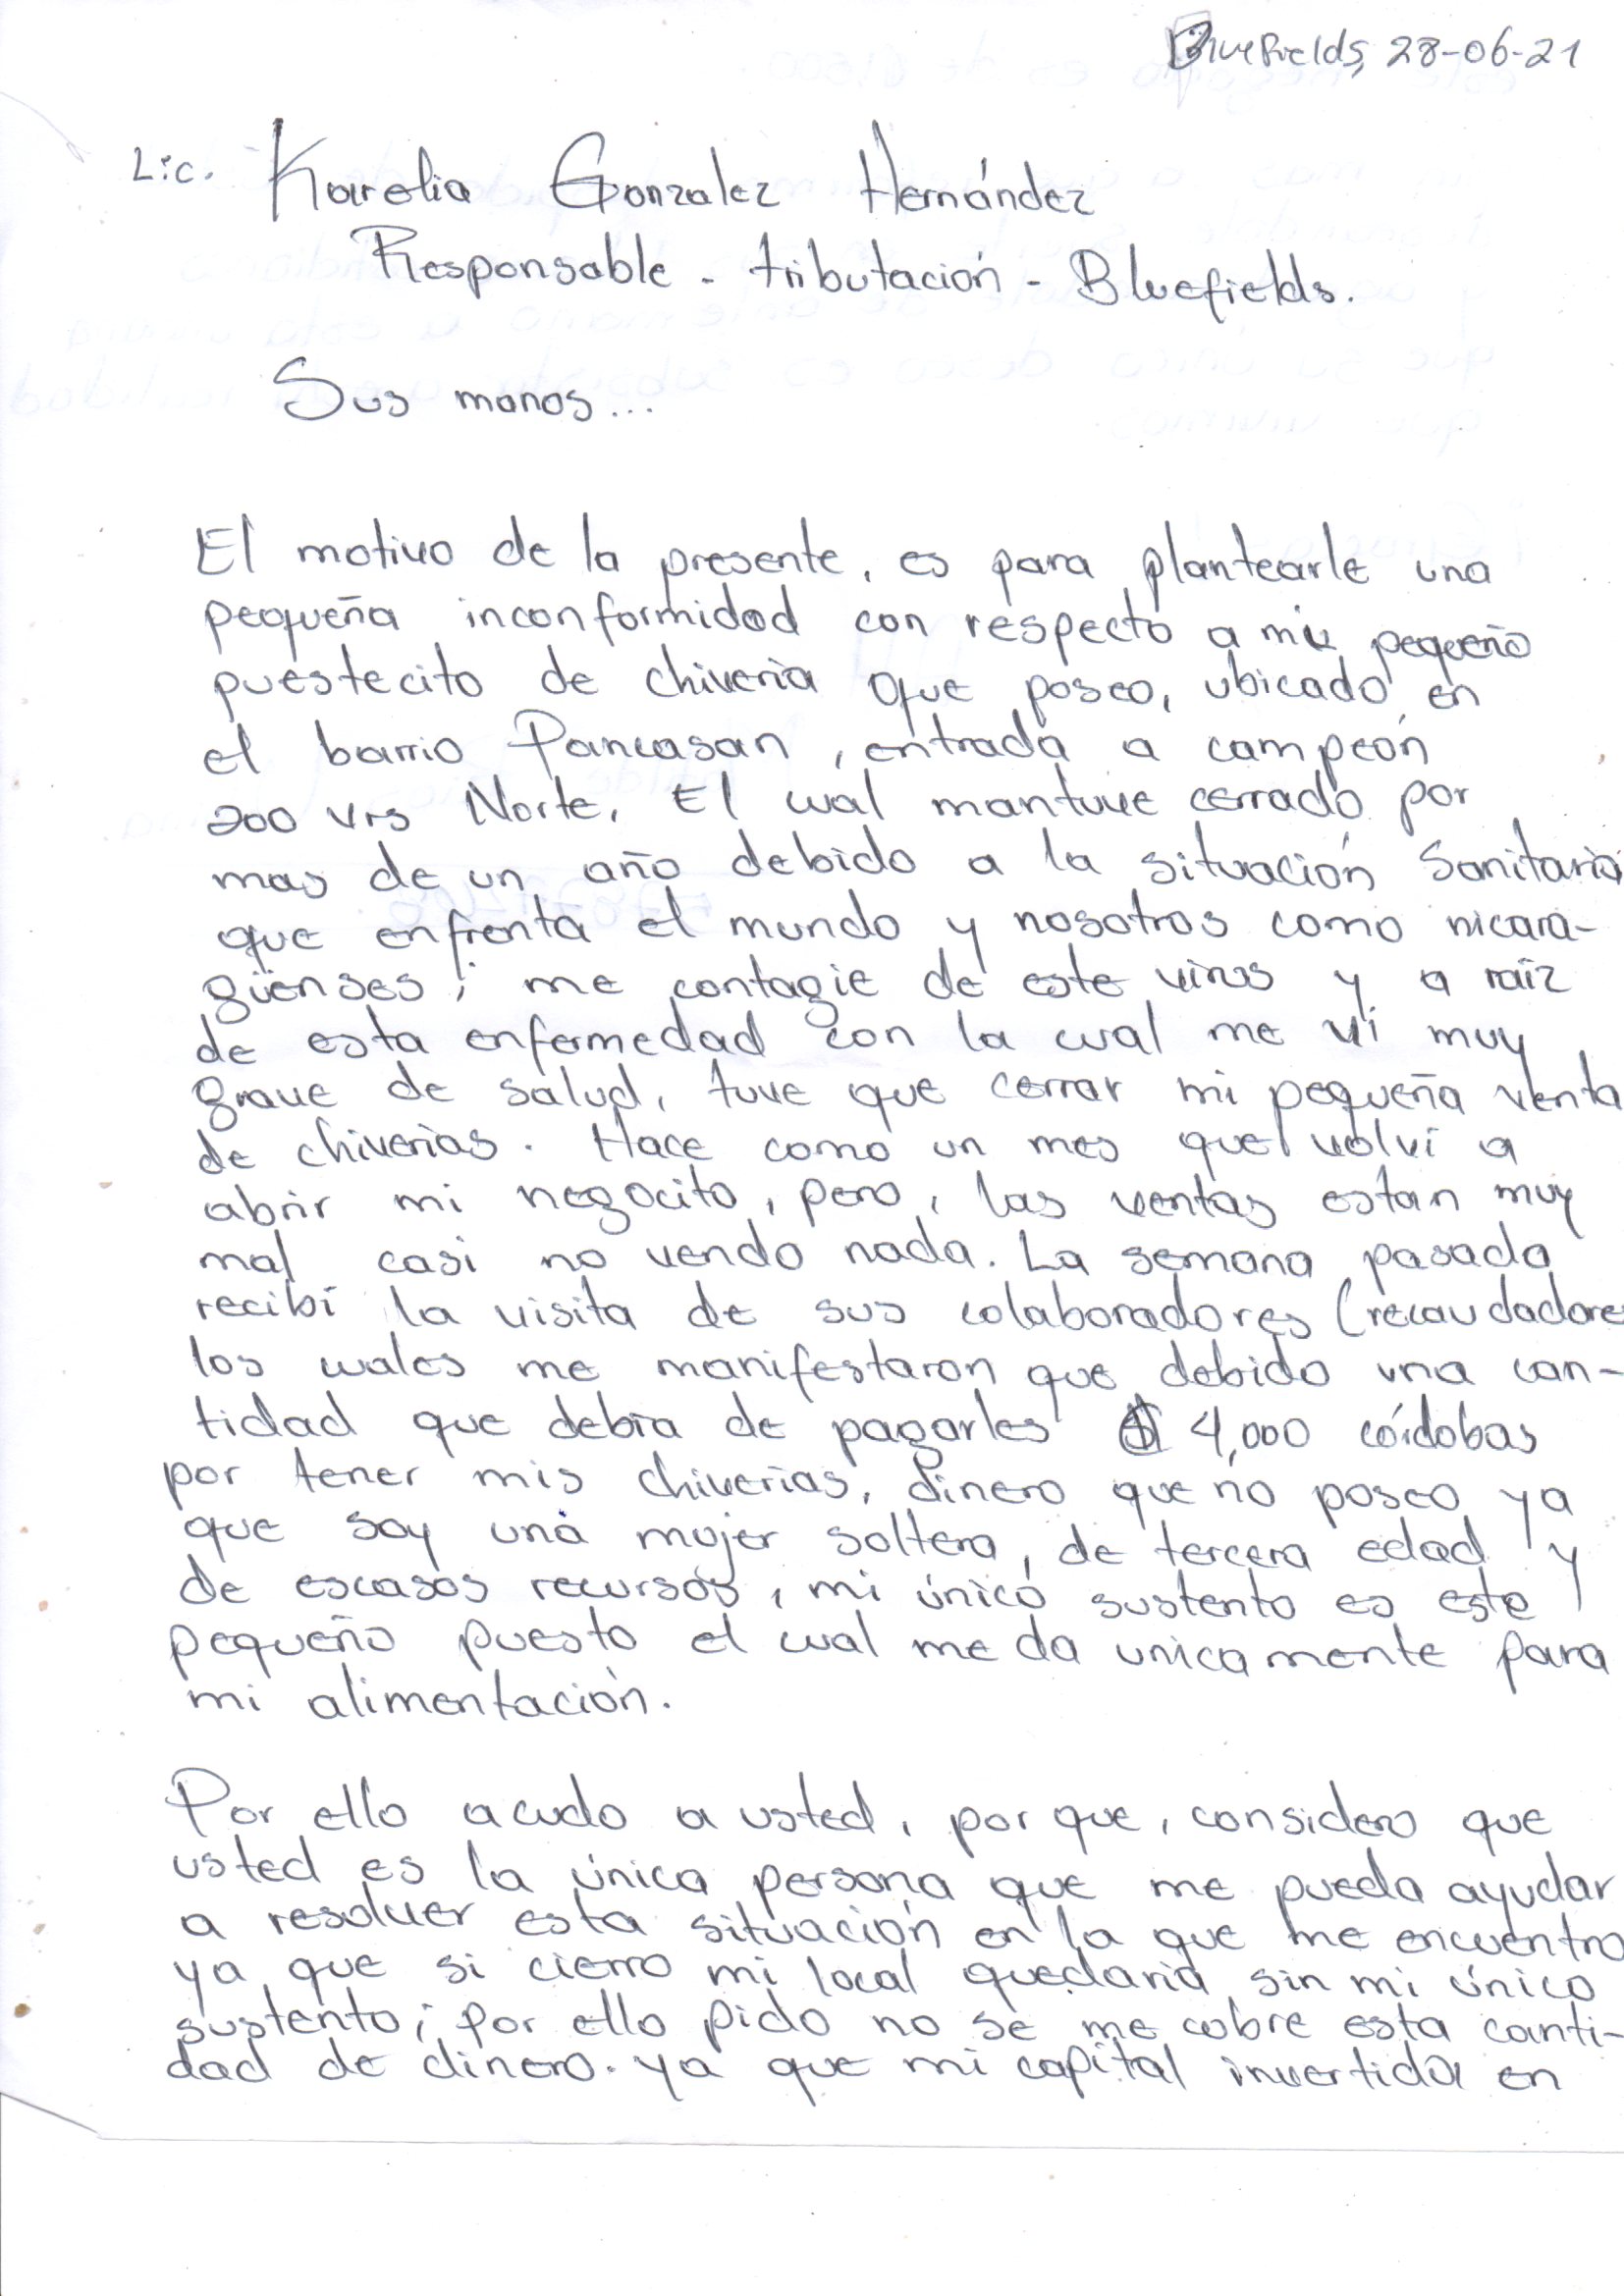 Bluefields, 28-06-21
Lic. Karelia Gonzalez Hernández
Responsable - tributación - Bluefields.
Sus manos...
El motivo de la presente, es para plantearle una
pequeña inconformidad con respecto a mi pequeño
puestecito de chivería que poseo, ubicado en
el barrio Pancasan, entrada a campeón
200 vrs Norte, El cual mantuve cerrado por
mas de un año debido a la situación Sanitaria
que enfrenta el mundo y nosotros como nicara-
güenses; me contagie de este virus y a raíz
de esta enfermedad con la cual me vi muy
grave de salud, tuve que cerrar mi pequeña venta
de chiverías. Hace como un mes que volví a
abrir mi negocito, pero, las ventas estan muy
mal casi no vendo nada. La semana pasada
recibí la visita de sus colaboradores (recaudadore
los cuales me manifestaron que debido una can-
tidad que debía de pagarles $ 4,000 córdobas
por tener mis chiverías, dinero que no poseo ya
que soy una mujer soltera, de tercera edad y
de escasos recursos, mi único sustento es este
pequeño puesto el cual me da unicamente para
mi alimentación.
Por ello acudo a usted, por que, considero que
usted es la única persona que me pueda ayudar
a resolver esta situación en la que me encuentro
ya que si cierro mi local quedaría sin mi único
sustento; por ello pido no se me cobre esta canti-
dad de dinero. ya que mi capital invertido en